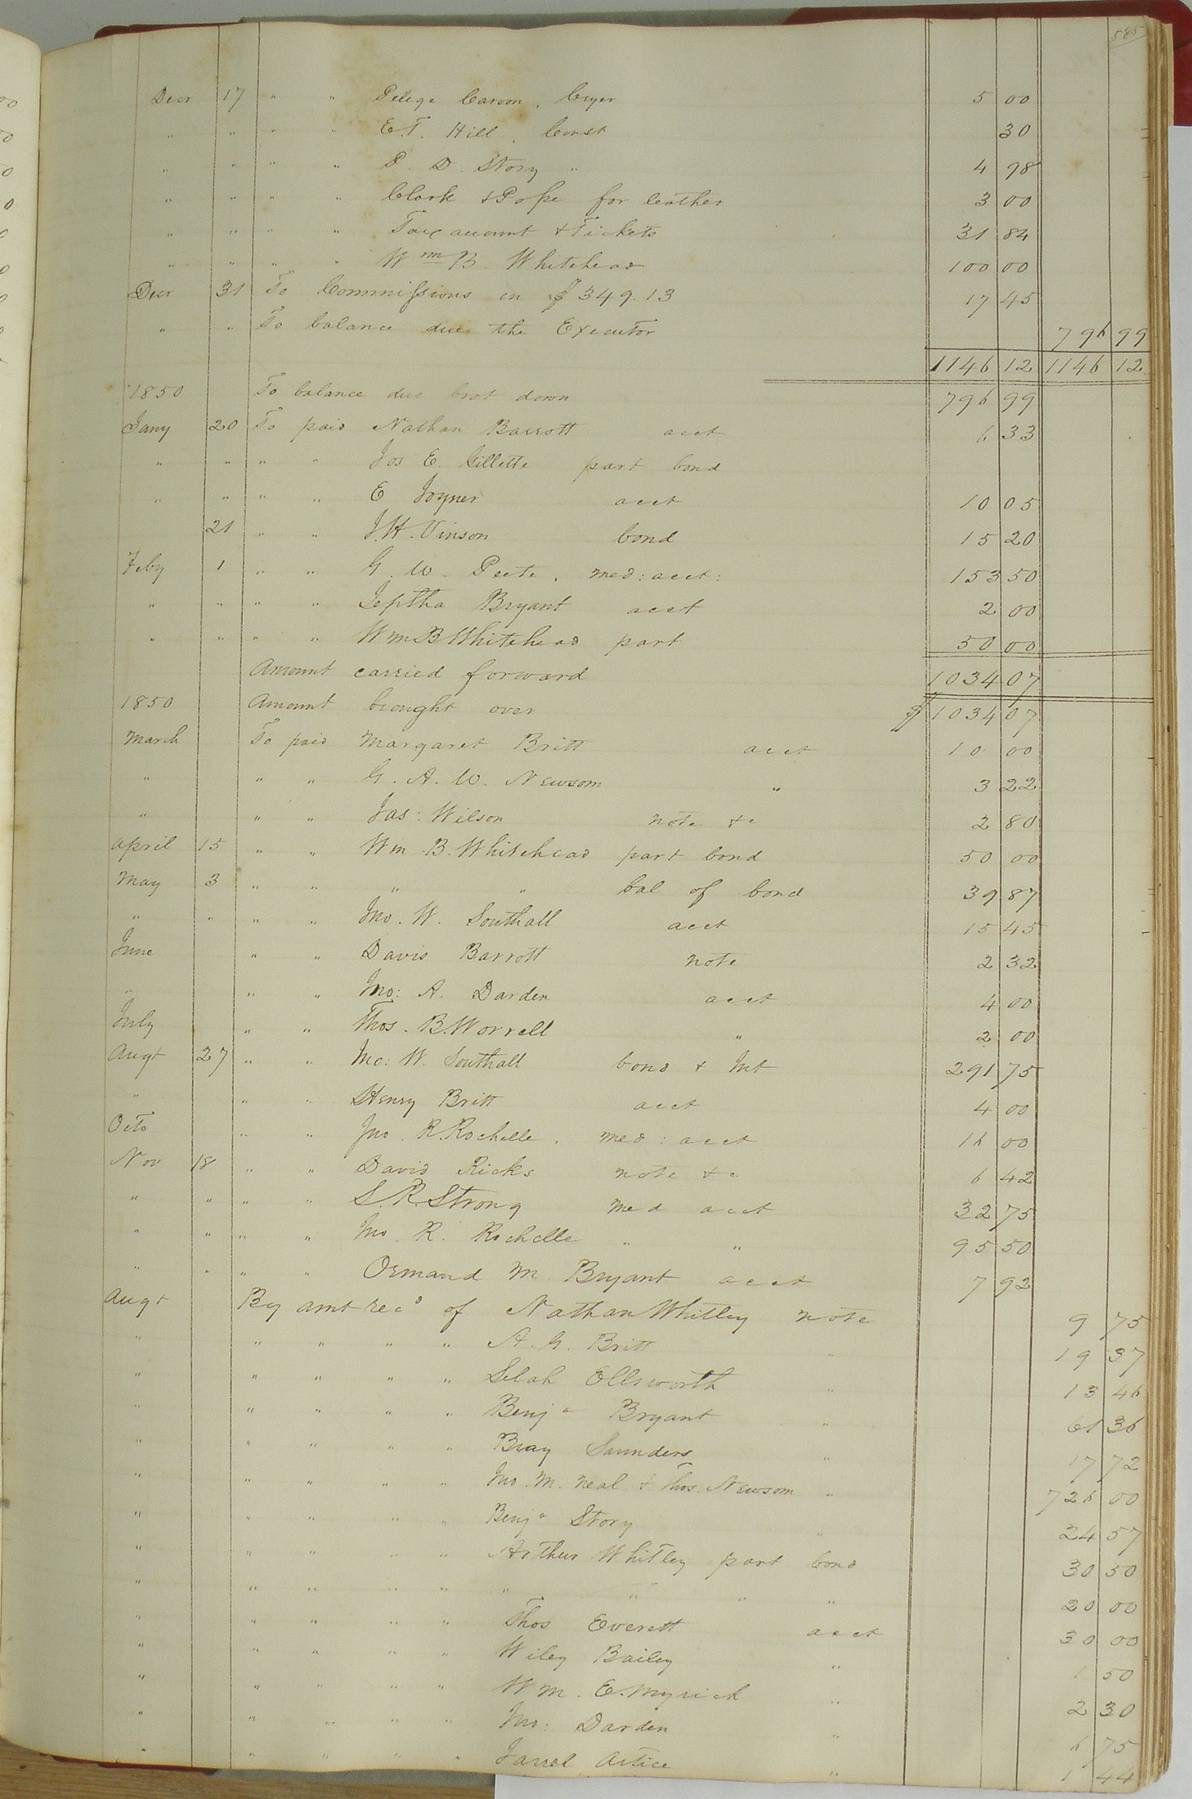 585
Decr 17 " " Pelege Carson, Cryer 5 00
" " " " E. T. Hill, Const 30
" " " " D. D. Story " 4 98
" " " " Clark & Pope for leather 3 00
" " " " Tax account & Tickets 31 84
" " " " Wm B. Whitehead 100 00
Decr 31 To Commissions on $349.13 17 45
" " To balance due the Executor 796 99
1146 12 1146 12
1850 To balance due brot down 796 99
Jany 20 To paid Nathan Barrott acct 6 33
" " " " Jos E. Gillette part bond
" " " " E Joyner acct 10 05
21 " " J. H. Vinson bond 15 20
Feby 1 " " G. W. Peete. med: acct: 153 50
" " " " Jeptha Bryant acct 2 00
" " " " Wm B Whitehead part 50 00
Amount carried forward 1034 07
1850 Amount brought over $ 1034 07
March To paid Margaret Britt acct 10 00
" " " G. A. W. Newsom " 3 22
" " " Jas: Wilson note &c 2 80
April 15 " " Wm B. Whitehead part bond 50 00
May 3 " " " " bal of bond 39 87
" " " " Jno. W. Southall acct 15 45
June " " Davis Barrott note 2 32
" " " Jno: A. Darden acct 4 00
July " " Thos. B. Worrell " 2 00
Augt 27 " " Jno: W. Southall bond & Int 291 75
" " " Henry Britt acct 4 00
Octo " " Jno. R. Rochelle. med: acct 16 00
Nov 18 " " David Ricks note &c 6 42
" " " " S. R. Strong med acct 32 75
" " " " Jno. R. Rochelle " " 95 50
" " " " Ormand M. Bryant acct 7 92
Augt By amt recd of Nathan Whitley note 9 75
" " " " " A. G. Britt " 19 37
" " " " " Selah Ellsworth " 13 46
" " " " " Benja Bryant " 61 36
" " " " " Bray Saunders " 17 72
" " " " " Jno. M. Neal & Thos. Newsom " 726 00
" " " " " Benja Story " 24 57
" " " " " Arthur Whitley part bond 30 50
" " " " " " " " " 20 00
" " " " " Thos Everett acct 30 00
" " " " " Wiley Bailey " 1 50
" " " " " Wm. E. Myrick " 2 30
" " " " " Jno: Darden " 6 75
" " " " " Jarrel Artice " 1 44